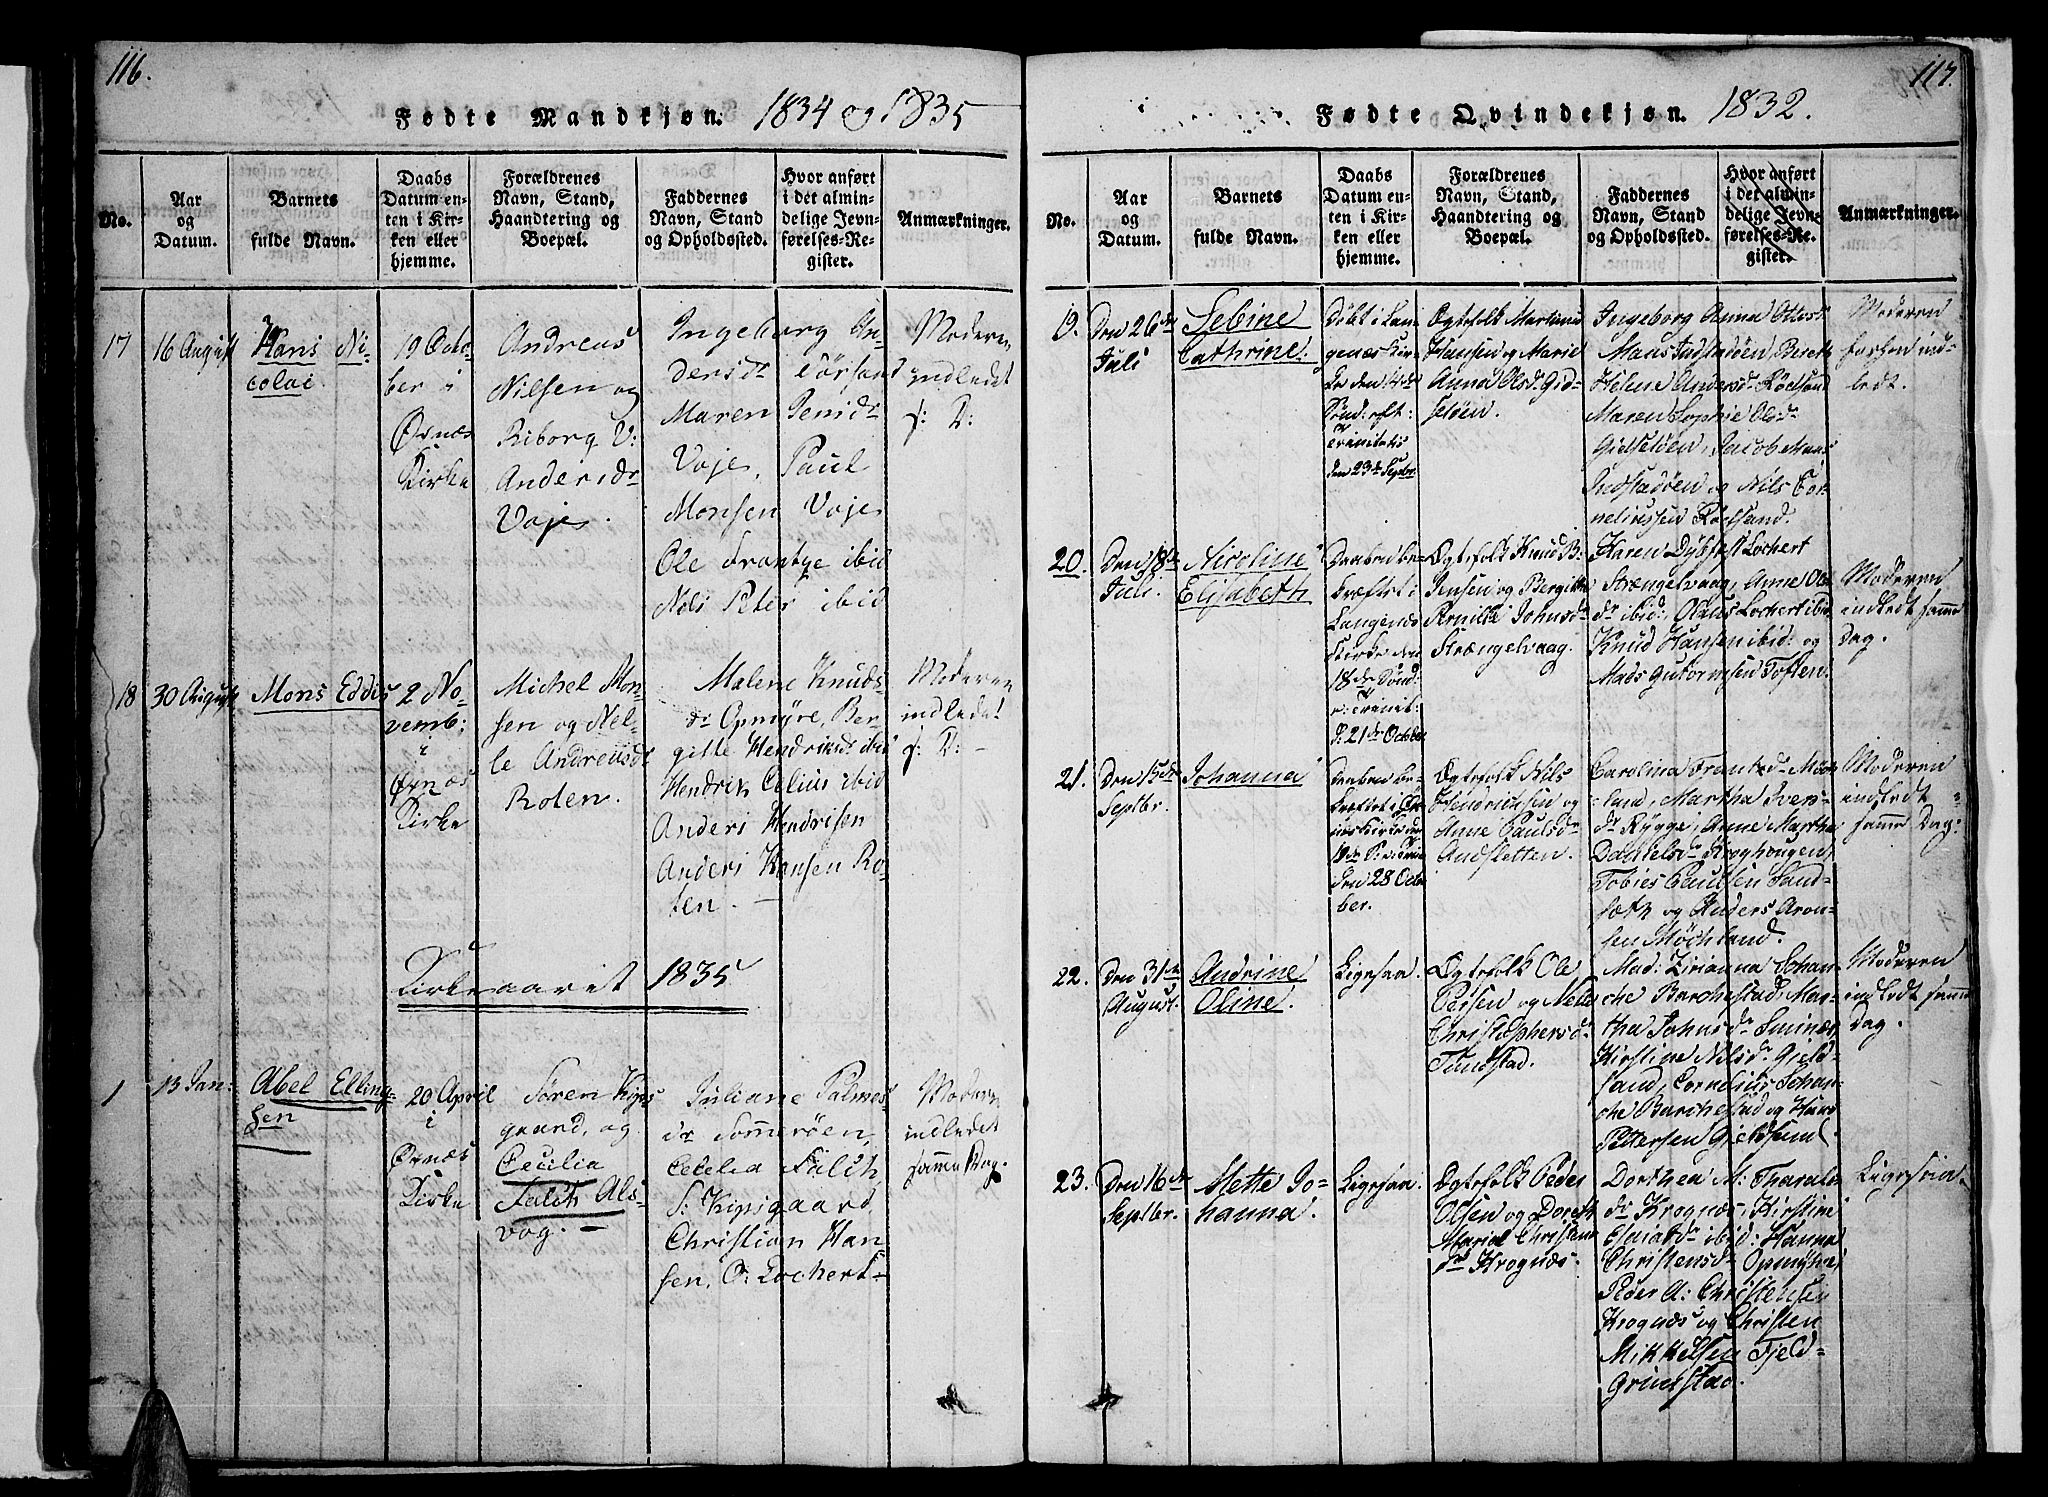 116.
Fødte Mandkjøn. 1834 og 1835
No.
Aar
og
Datum.
Barnets
fulde Navn.
Daabs
Datum en-
ten i Kir-
ken eller
hjemme.
Forældrenes
Navn, Stand,
Haandtering og
Boepæl.
Faddernes
Navn, Stand
og Opholdssted.
Hvor anført
i det almin-
delige Jevn-
førelses-Re-
gister.
Anmærkninger.
17
16 August
Hans Ni-
colai
19 Octo-
ber i
Øxnæs
Kirke
Andreas
Nilsen og
Riborg V:
Andersdr
Voje
Ingeborg An-
dersdr
Maren Jensdr
Voje, Paul
Monsen Voje
Ole Frantze ibid
Nels Peter ibid
Moderen
indledet
s: D:
18
30 August
Mons Eddis
2 No-
vemb:
i
Øxnæs
Kirke
Michel Mon-
sen og Nel-
le Andreasdr
Roten.
Malene Knuds-
dr Opmyre, Ber-
gitte Hendriksdr ibid
Hendrik Celius ibid
Anders Hendrisen
Anders Hansen Ro-
ten.
Moderen
indledet
s: D:
Kirkeaaret 1835
1
13 Jan:
Abel Elling-
sen
20 April
i
Øxnæs
Kirke
Søren Kips
gaard, og
Cecilia
Falch Als-
vog.
Juliane Palmes-
dr Sommerøen,
Cecelia Falch,
S: Kipsgaard,
Christian Han
sen, O: Lochert
Moderen
indledet
samme Dag.
117.
Fødte Qvindekjøn. 1832.
No.
Aar
og
Datum.
Barnets
fulde Navn.
Daabs
Datum en-
ten i Kir-
ken eller
hjemme.
Forældrenes
Navn, Stand,
Haandtering og
Boepæl.
Faddernes
Navn, Stand
og Opholdssted.
Hvor anført
i det almin-
delige Jevn-
førelses-Re-
gister.
Anmærkninger.
19.
Den 26de
Juli
Sebine
Cathrine.
Døbt i Lan
genæs Kir-
ke den 14de
Sønd: eft:
Trinitatis
den 23de Septbr
Ægtefolk Martinus
Hansen og Marie
Anna Olsdr Gid-
seløen.
Ingeborg Anna Ottesd
Mans Indstadøen
Helene Andersdr Rødsand
Maren Sophie Olsdr
Gidseløen, Jacob Mans
Indstadøen og Nils Cor-
neliussen Rødsand.
Moderen
forhen ind-
ledt.
20.
Den 18de
Juli.
Nicoline
Elisabeth
Daaben be-
kræftet i
Langenæs
Kirke den
18de Sønd:
e: Trinit:
d: 21de October
Ægtefolk Knud B:
Jensen og Bergitte
Arnikke Johnsdr
Strængelvaag.
Karen Dybfest Lochert
Strengelvaag, Anne Ols
dr ibid:, Olaus Lochert ibid
Knud Hansen ibid: og
Mads Gutormsen Toften.
Moderen
indledt samme
Dag.
21.
Den 15de
Septbr.
Johanna
Daaben be-
kræftet i Øx
næs Kirke den
19de
den 28 Octo
ber.
Ægtefolk Nils
Hendricksen og
Anne Paulsdr
Andsletten.
Carolina Frantzdr Möck
land, Martha Svers-
dr Rygge, Anne Martha
Danielsdr Kroghougen,
Tobies Paulsen Sand-
sæth og Anders Aron-
sen Möchland.
Moderen
indledt
samme Dag:
22.
Den 31te
August.
Andrine
Oline.
Ligesaa.
Ægtefolk Ole
Persen og Nelle
Christophersdr
Tundstad.
Mad: Zirianna Schan-
che Barchestad, Mar-
tha Johnsdr Smines
Kirstine Nilsdr Gield-
sand, Cornelius Schan-
che Barchestad og Hans
Pettersen Gieldsand.
Moderen
indledt samme
Dag.
23.
Den 16de
Septbr.
Mette Jo-
hanna.
Ligesaa.
Ægtefolk Peder
Olsen og Doreth
Maria Christens
dr Krognæs.
Dorthea M: Tharals
dr Krognæs, Kirstine
Esaiasdr ibid: Hanna
Christensdr Opmyhre
Peder A: Christensen
Krognæs og Christen
Mikkelsen Fjeld-
Grimstad.
Ligesaa.